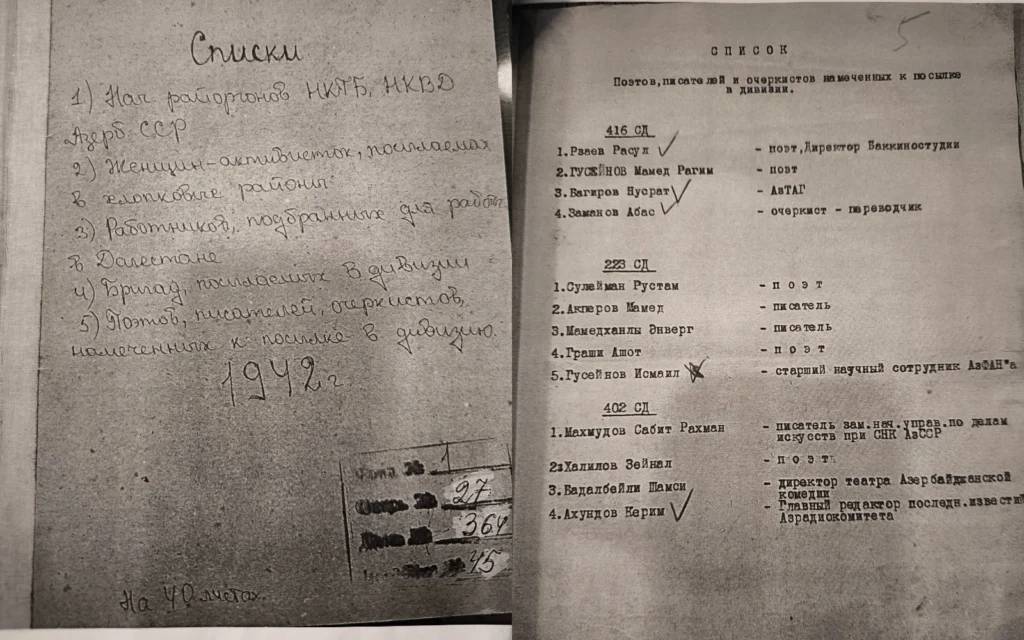 Списки
1) Нач райоргонов НКГБ, НКВД
Азерб. ССР
2) Женщин-активисток, посылаемых
в хлопковые районы.
3) Работников, подбранных для работы
в Дагестане
4) Бригад, посылаемых в дивизии
5) Поэтов, писателей, очеркистов,
намеченных к посылке в дивизию.
1942 г.
1
27
364
45
На 40 листах.
5
СПИСОК
Поэтов, писателей и очеркистов намеченных к посылке
в дивизии.
416 СД
1. Рзаев Расул - поэт, Директор Баккиностудии
2. ГУСЕЙНОВ Мамед Рагим - поэт
3. Багиров Нусрат - АзТАГ
4. Заманов Абас - очеркист - переводчик
223 СД
1. Сулейман Рустам - поэт
2. Акперов Мамед - писатель
3. Мамедханлы Энверг - писатель
4. Граши Ашот - поэт
5. Гусейнов Исмаил - старший научный сотрудник АзФАН"а
402 СД
1. Махмудов Сабит Рахман - писатель зам.нач.управ.по делам
искусств при СНК АзССР
2з Халилов Зейнал - поэт
3. Бадалбейли Шамси - директор театра Азербайджанской
комедии
4. Ахундов Керим - Главный редактор последн.известий
Азрадиокомитета